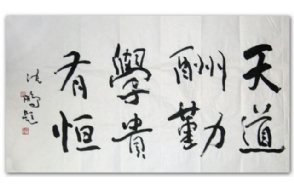 天道
酬勤
學貴
有恒